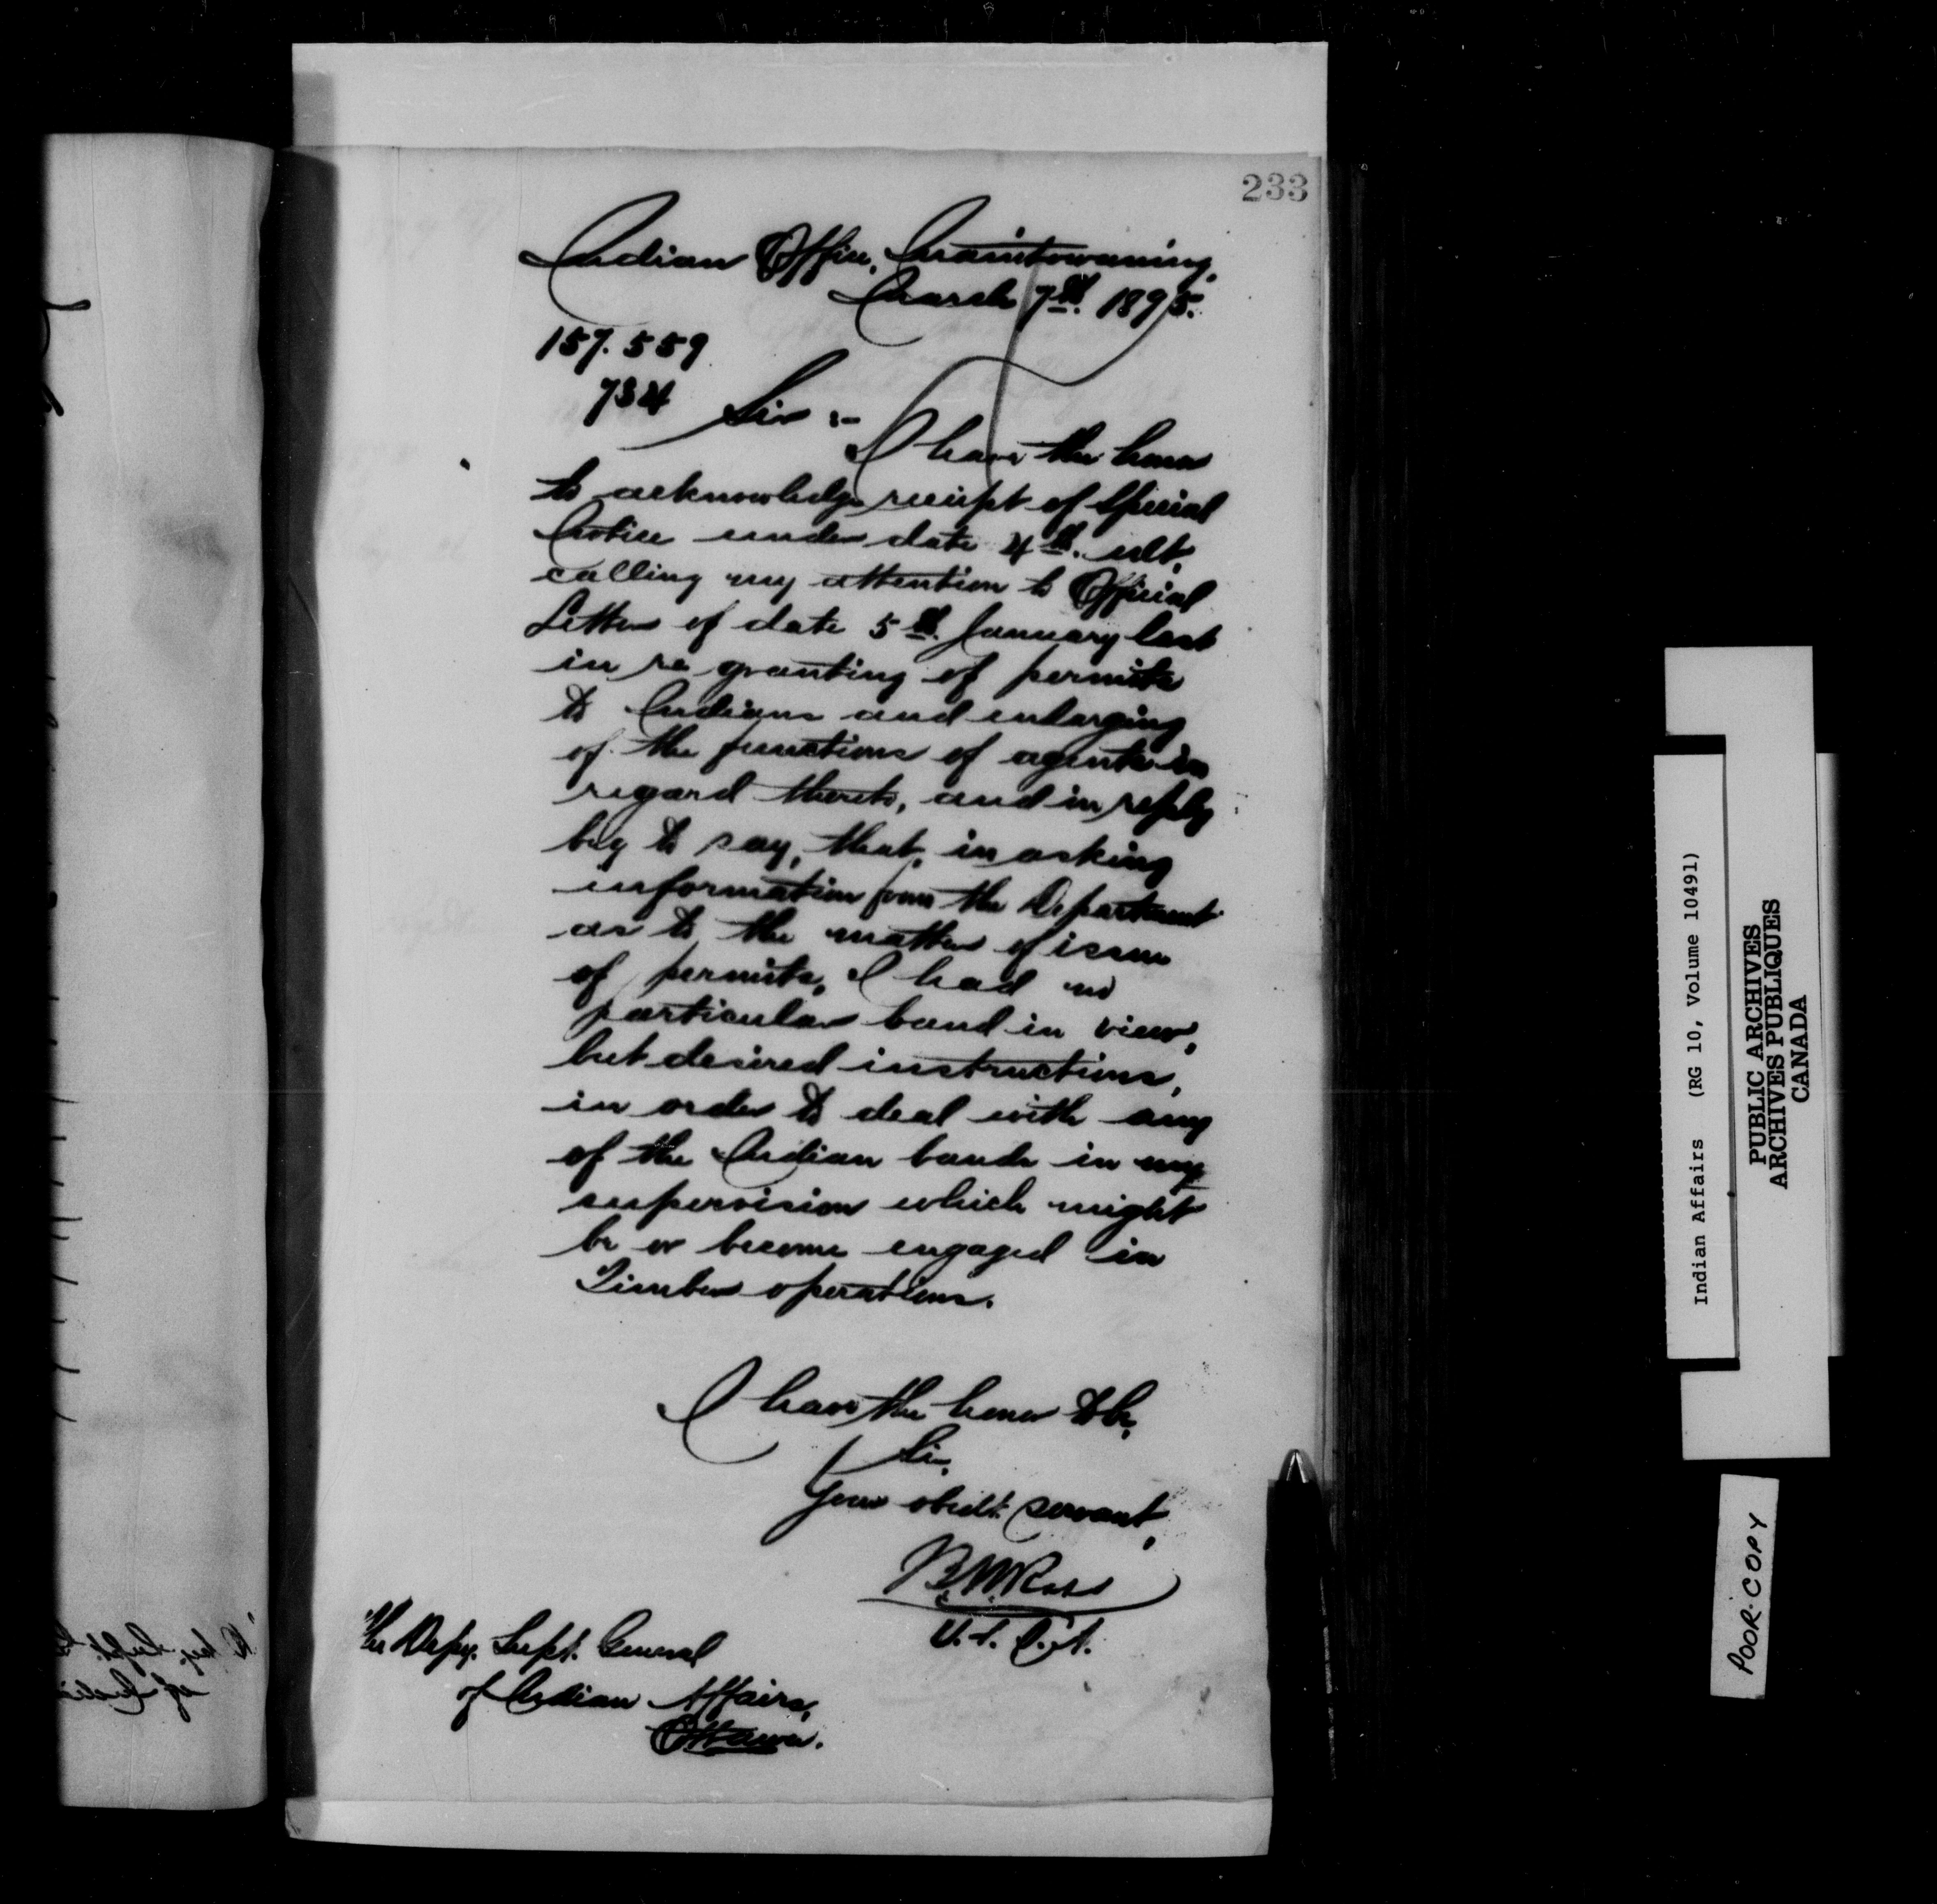 233
Indian Office, Manitowaning,
March 7th. 1895.
157.559
734
Sir :-
I have the honor
to acknowledge receipt of Special
Notice under date 4th. ult,
calling my attention to Official
Letter of date 5th. January last
in re granting of permits
to Indians and enlarging
of the functions of agents in
regard thereto, and in reply
beg to say, that, in asking
information from the Department
as to the matter of issue
of permits, I had no
particular band in view,
but desired instructions,
in order to deal with any
of the Indian bands in my
supervision which might
be or become engaged in
Timber operations.
I have the honor to be,
Sir,
Your obedt. servant,
B.W. Ross
The Depy. Supt. General
of Indian Affairs,
Ottawa.
Indian Affairs (RG 10, Volume 10491)
PUBLIC ARCHIVES
ARCHIVES PUBLIQUES
CANADA
POOR COPY